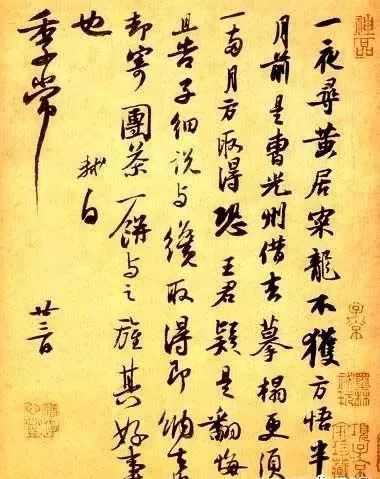 神品
一夜尋黃居寀龍不獲方悟半
月前是曹光州借去摹搨更須
一兩月方取得恐王君疑是翻悔
且告子細說與纔取得即納去
却寄團茶一餅與之旌其好事
也
軾白
季常
廿三日
子京